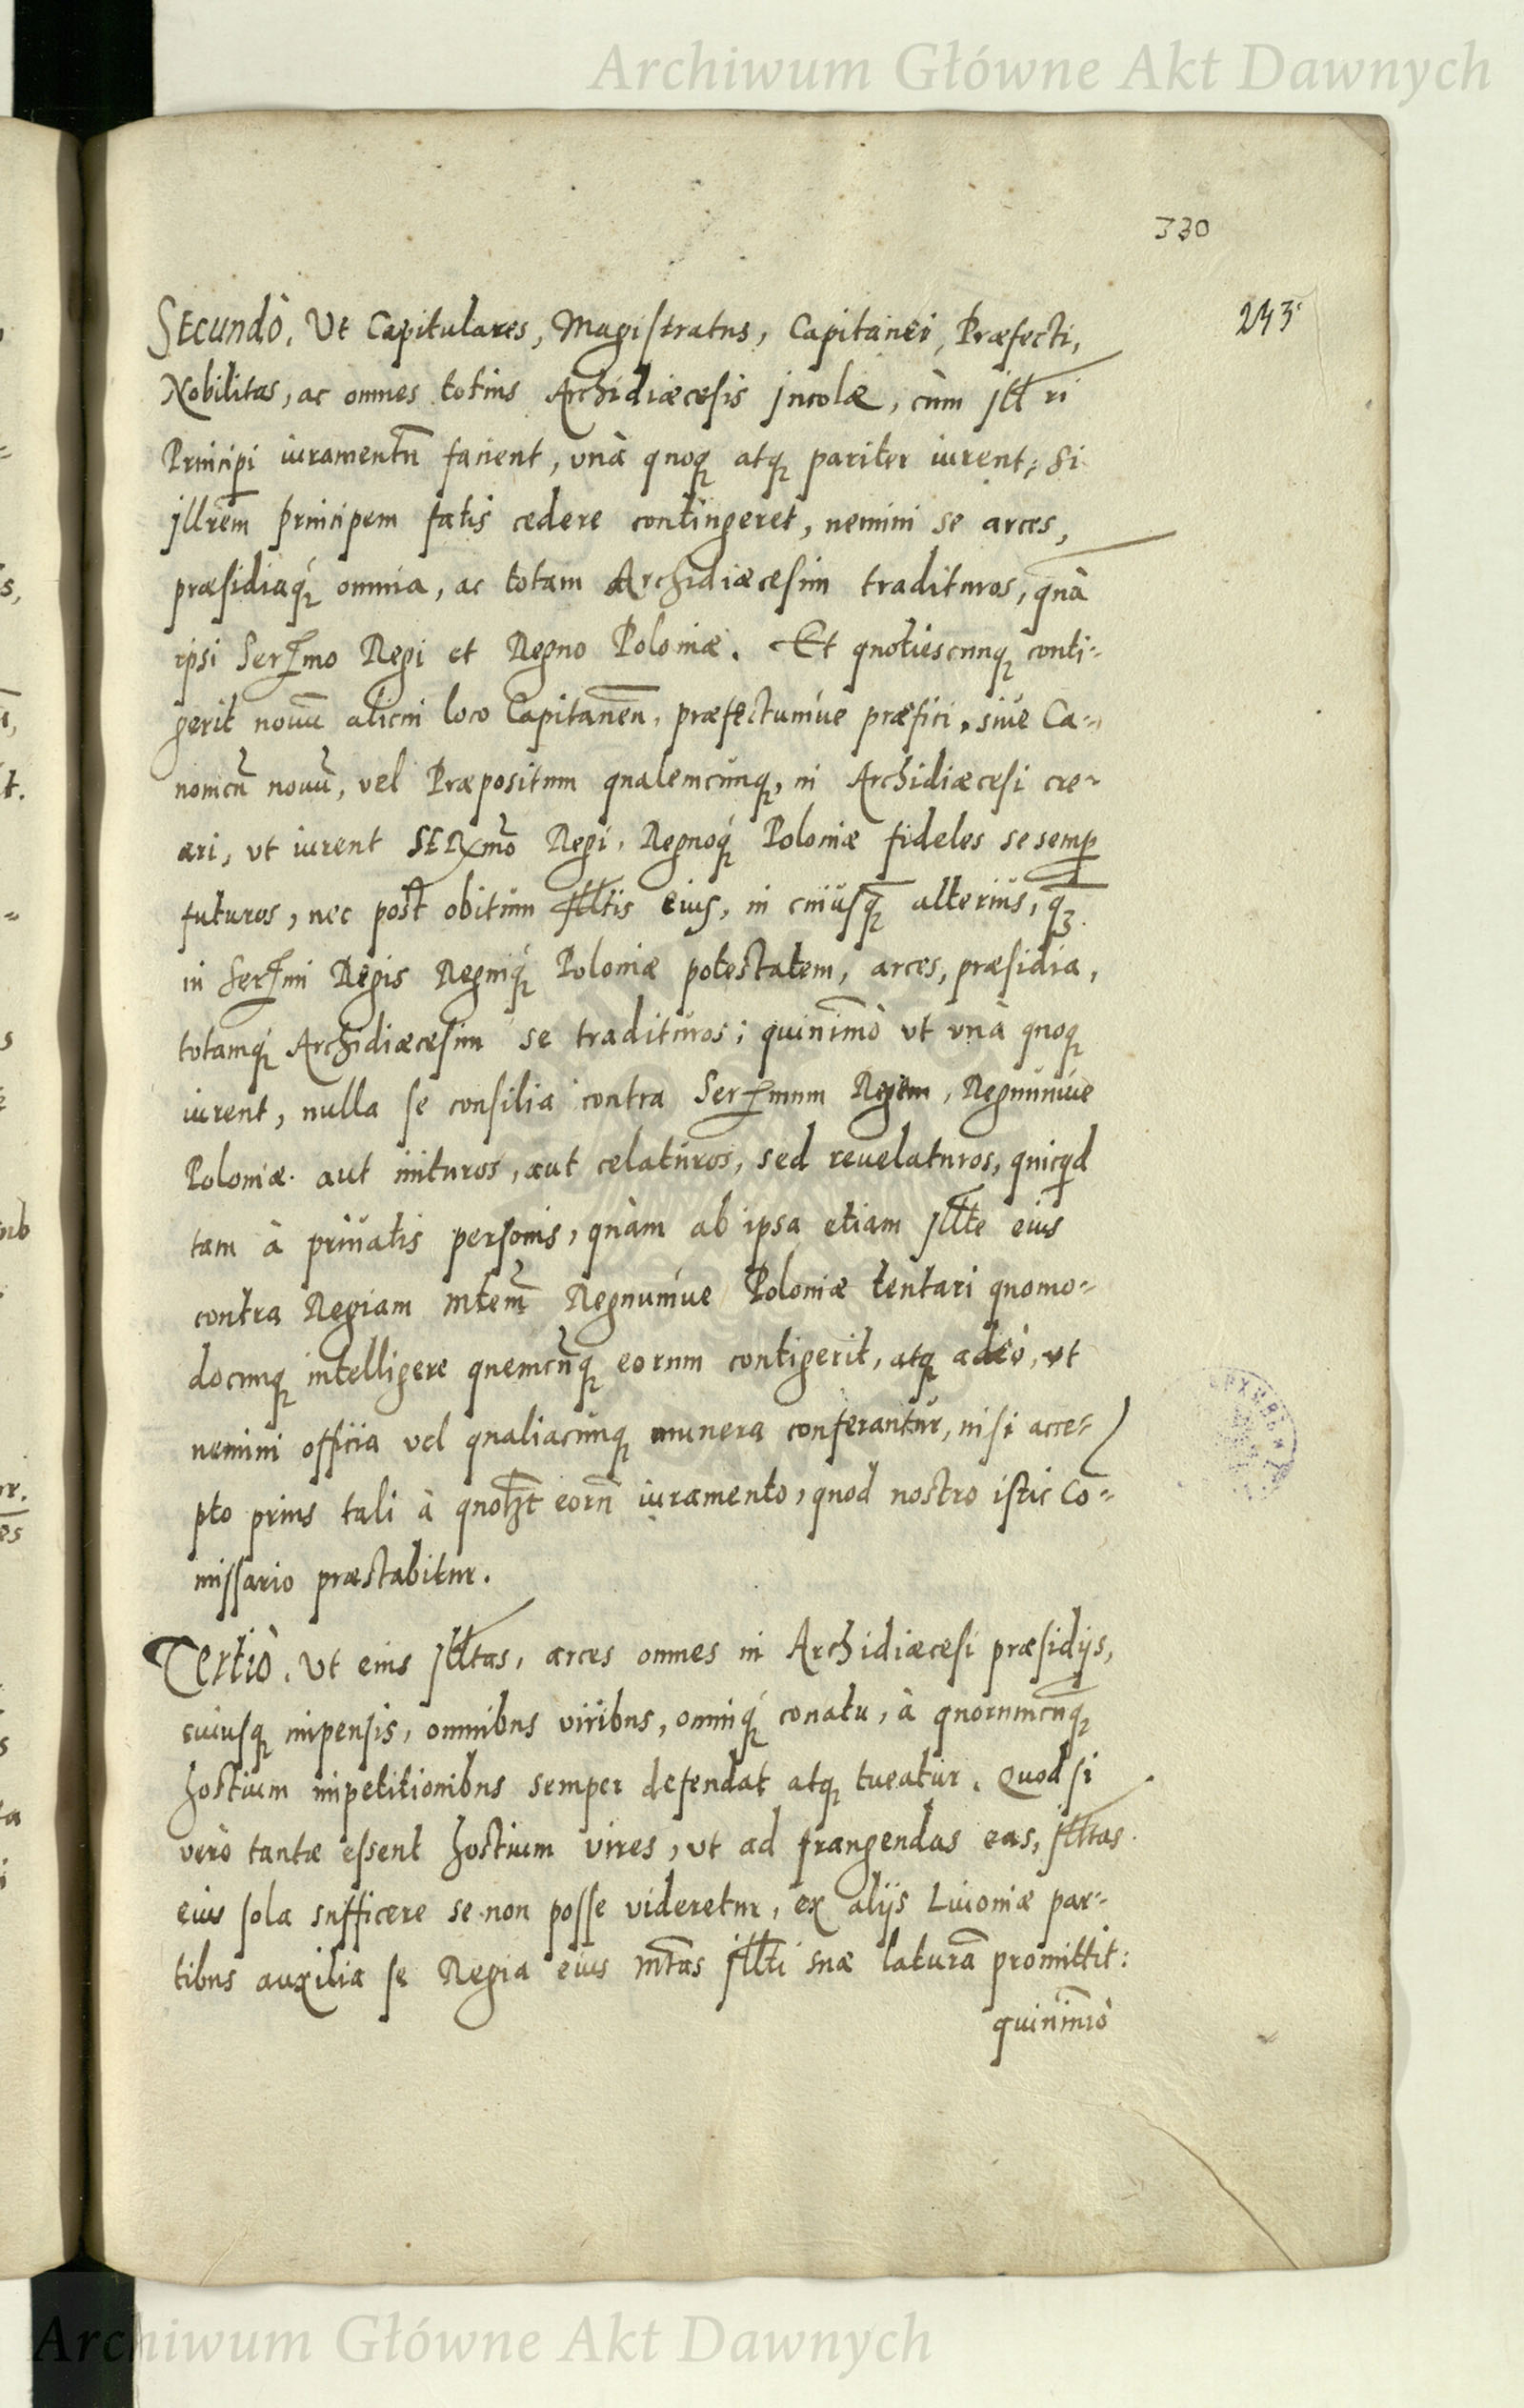 Archiwum Główne Akt Dawnych
330
243
Secundò. Ut Capitulares, Magistratus, Capitanei, Præfecti,
Nobilitas, ac omnes totius Archidiæcesis jncolæ, cùm jll ri
Principi iuramentū facient, vnà quoq atq pariter iurent; si
jllrēm principem fatis cedere contingeret, nemini se arces,
præsidiaq́ omnia, ac totam Archidiæcesim tradituros, quà
ipsi Serᵐmo Regi et Regno Poloniæ. Et quotiescunq conti-
gerit nouū alicui loco Capitaneū, præfectumúe præfici, siue Ca-
nonicū nouū, vel Præpositum qualemcunq, in Archidiæcesi cre-
ari, vt iurent SERmō Regi, Regnoq́ Poloniæ fideles se semp
futuros, nec post obitum jlltis eius, in cuiúsq alterius, q̄
in Serᵐmi Regis Regniq́ Poloniæ potestatem, arces, præsidia,
totamq́ Archidiæcesim se tradituros; quinimò vt vnà quoq
iurent, nulla se consilia contra Serᵐmum Regem, Regnumúe
Poloniæ aut inituros, aut celaturos, sed reuelaturos, quicqd
tam à priuatis personis, quàm ab ipsa etiam jllte eius
contra Regiam mtēm Regnumúe Poloniæ tentari quomo-
docunq intelligere quemcūq eorum contigerit, atq adeò, vt
nemini officia vel qualiacunq munera conferantur, nisi acce-
pto prius tali à quolꝫt eorū iuramento, quod nostro istic Co-
missario præstabitur.
Tertiò. Ut eius jlltas, arces omnes in Archidiæcesi præsidijs,
cuiusq impensis, omnibus viribus, omniq́ conatu, à quorumcūq
hostium impetitionibus semper defendat atq tueatur. Quod si
verò tantæ essent hostium vires, vt ad frangendas eas, jlltas
eius sola sufficere se non posse videretur, ex alijs Liuoniæ par-
tibus auxilia se Regia eius mtas jllti suæ laturā promittit:
quinimò
Archiwum Główne Akt Dawnych